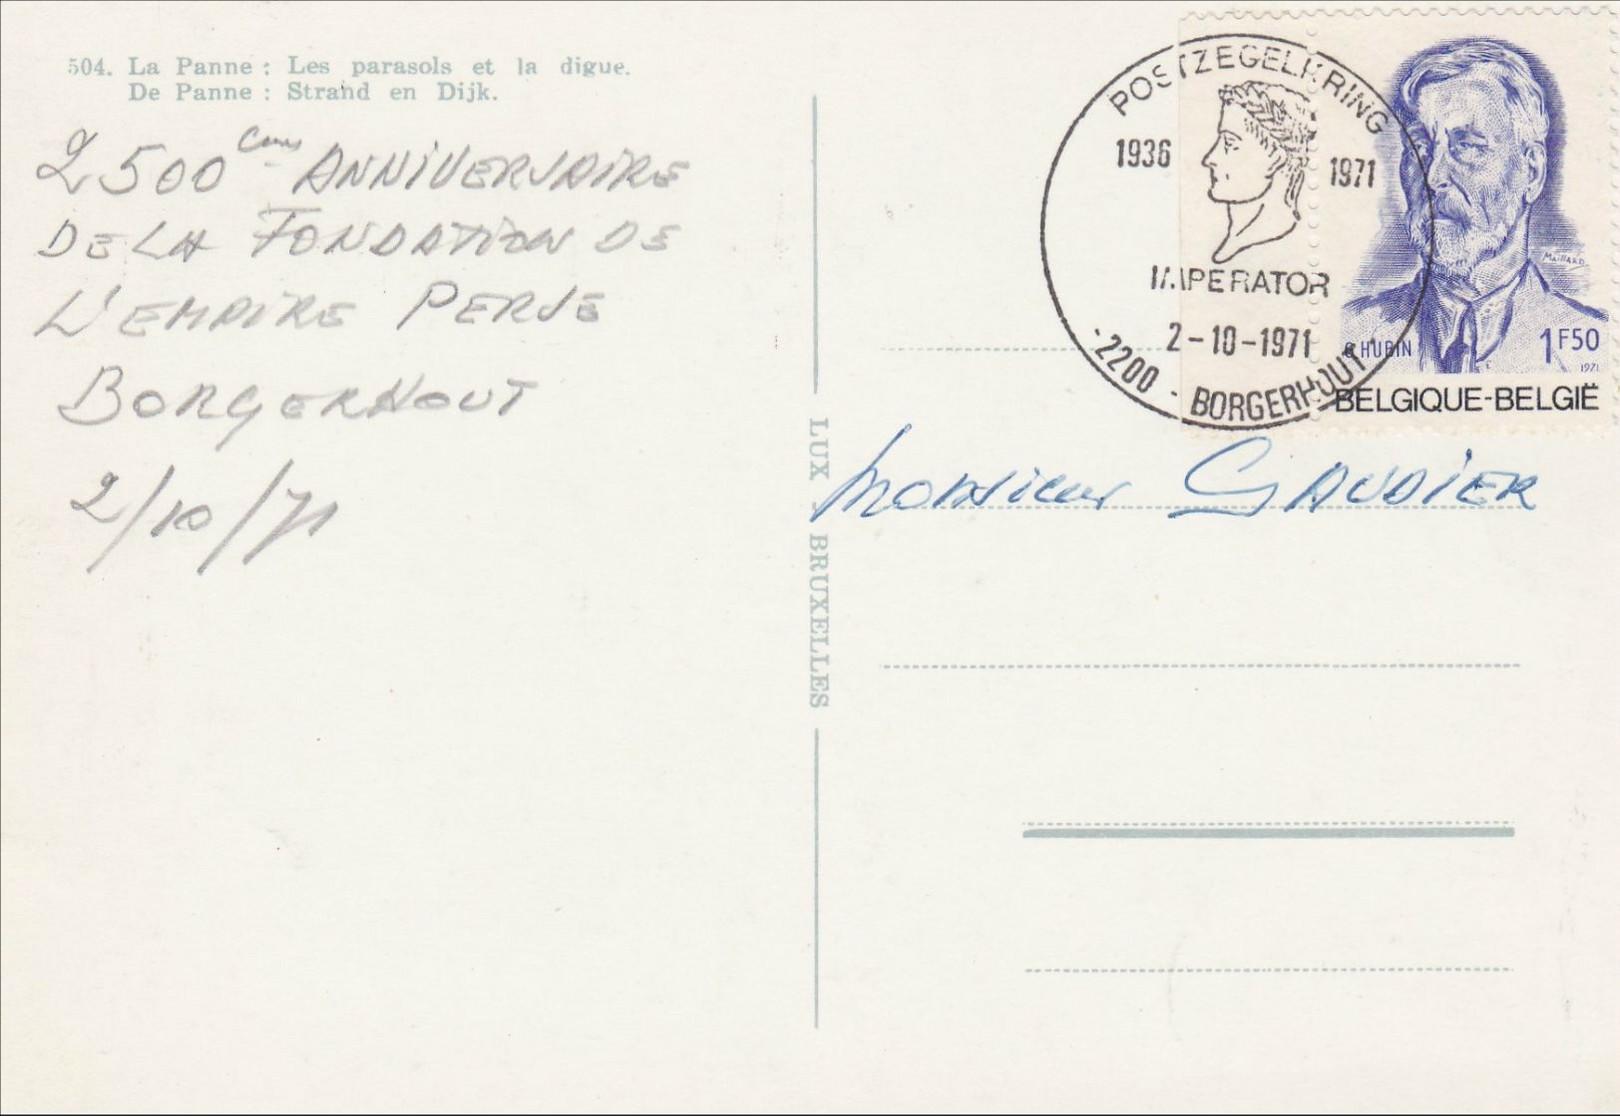 504. La Panne : Les parasols et la digue.
De Panne : Strand en Dijk.
2500 ème ANNIVERSAIRE
DE LA FONDATION DE
L'EMPIRE PERSE
BORGERHOUT
2/10/71
LUX BRUXELLES
POSTZEGELKRING
1936 1971
IMPERATOR
2-10-1971
- 2200 - BORGERHOUT -
Maillard
G. HUBIN
1F50
1971
BELGIQUE-BELGIË
Monsieur GAUDIER